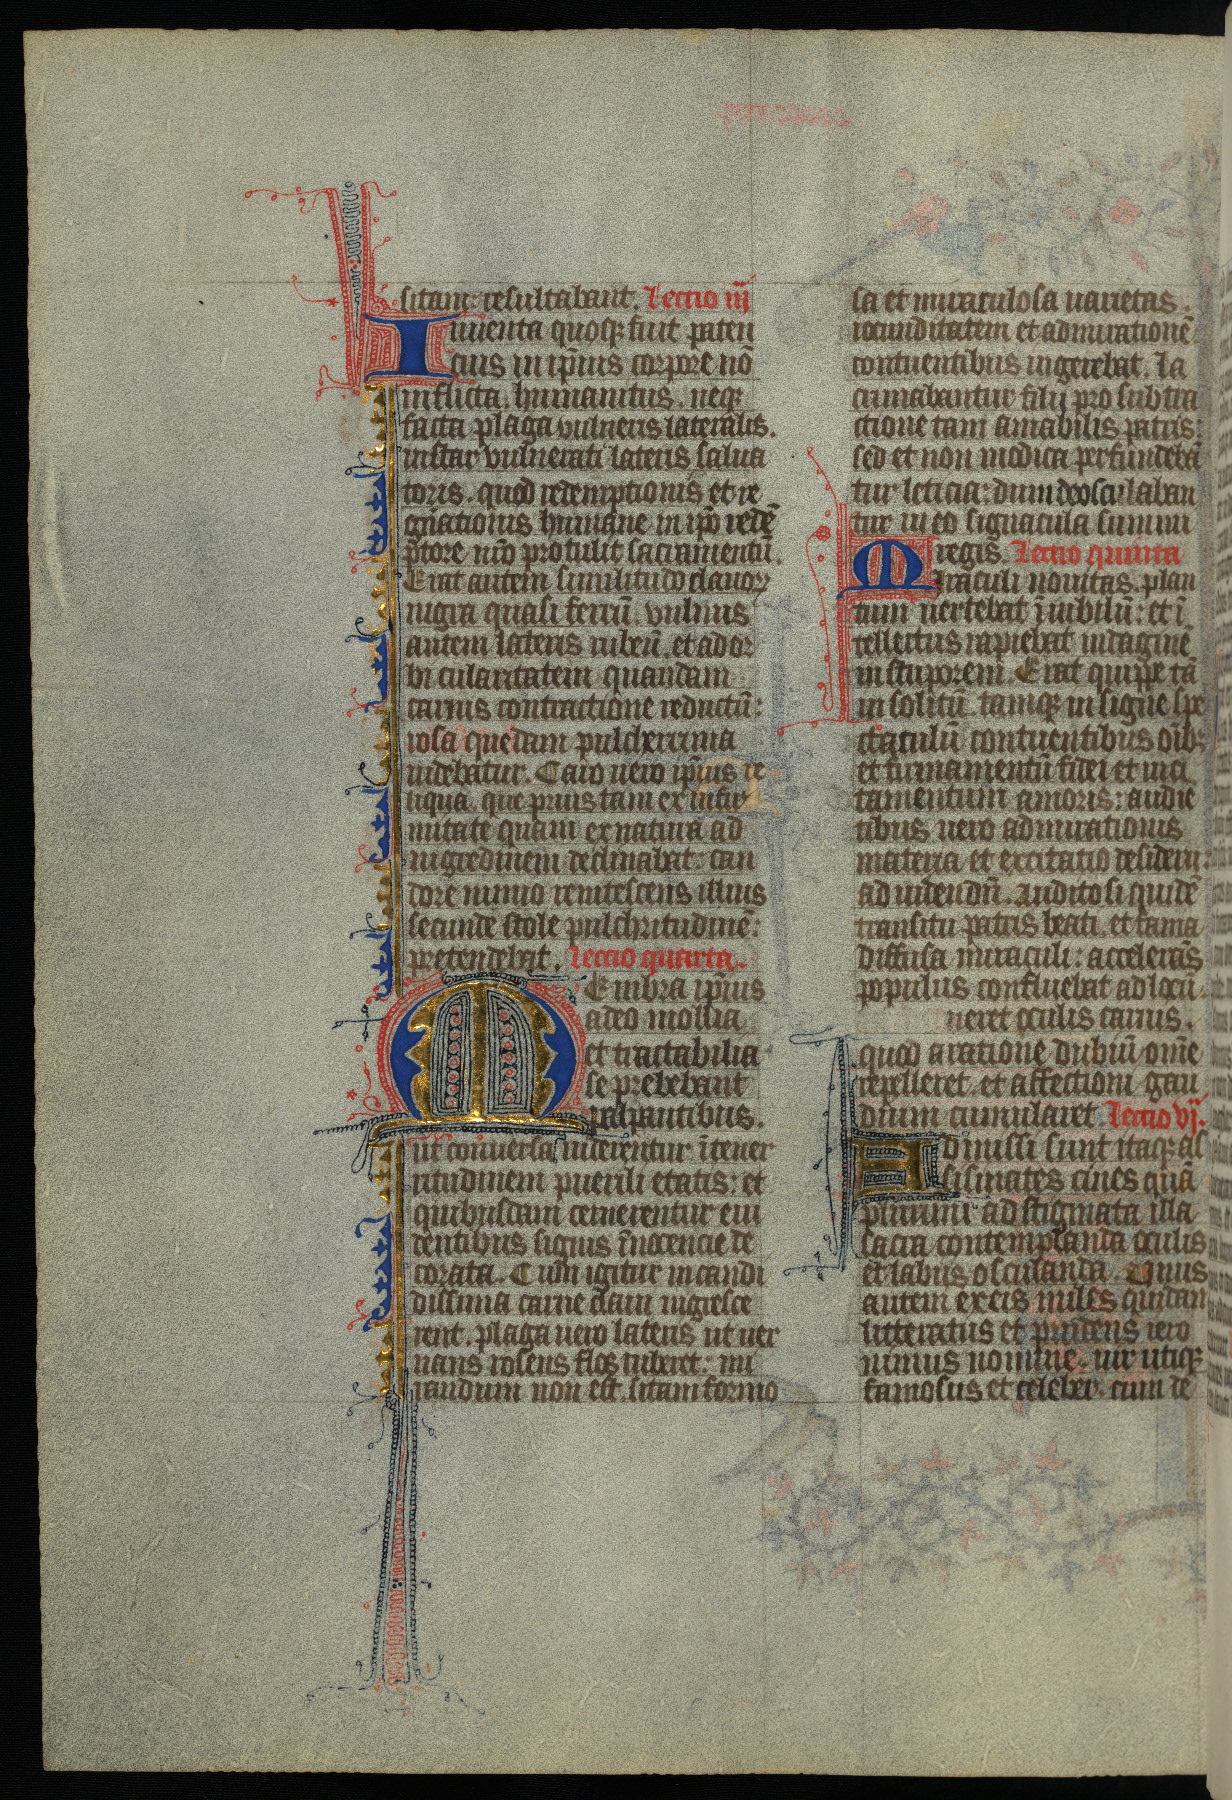 sitam: resultabant. Lectio iij
Inuenta quoqꝫ fuit paten
cius in ip̄ius corpore nō
inflicta humanitus. neqꝫ
facta plaga vulneris lateralis.
instar vulnerati lateris salua
toris. quod redemptionis et re
gn̄ationis humane in ip̄o redē
ptore nr̄o protulit sacramentū.
Erat autem similitudo clauoꝝ
nigra quasi ferrū. vulnus
autem lateris rubeū. et ad or
bicularitatem quandam
carnis contractione reductū:
rosa quedam pulcherrima
uidebatur. Caro uero ip̄ius re
liqua. que prius tam ex infir
mitate quam ex natura ad
nigredinem declinabat: can
dore nimio renitescens illius
secunde stole pulchritudinē:
pretendebat. Lectio quarta.
Membra ip̄ius
adeo mollia
et tractabilia
se prebebant
palpantibus.
ut conuersa uiderentur ī tener
itudinem puerilis etatis: et
quibusdam cernerentur eui
dentibus signis īnocencie de
corata. Cum igitur in candi
dissima carne claui nigresce
rent. plaga uero lateris ut uer
nans rosens flos ruberet: mi
randum non est. si tam formo
sa et miraculosa uarietas.
iocunditatem et admirationē
contuentibus ingerebat. La
crimabantur filij pro subtra
ctione tam amabilis patris:
sed et non modica perfundebā
tur leticia: dum deosculaban
tur in eo signacula summi
regis. Lectio quinta
Miraculi nouitas. plan
tum uertebat ī iubilū: et ī
tellectus rapiebat indaginē
in stuporem. Erat quippe tā
insolitū. tamqꝫ insigne spe
ctaculū contuentibus oībꝫ
et firmamentū fidei et inci
tamentum amoris: audiē
tibus uero admirationis
materia et excitatio desiderii
ad uidendū. Audito siquidē
transitu patris beati. et fama
diffusa miraculi: accelerās
populus confluebat ad locū
neret oculis carnis.
quod a ratione dubiū om̄e
repelleret. et affectioni gau
dium cumularet. Lectio vj.
Admissi sunt itaqꝫ as
sisinates ciues quā
plurimi ad stigmata illa
sacra contemplanda oculis
et labiis osculanda. Unus
autem ex eis miles quidam
litteratus et prudens iero
nimus nomine. uir utiqꝫ
famosus et celeber. cum de